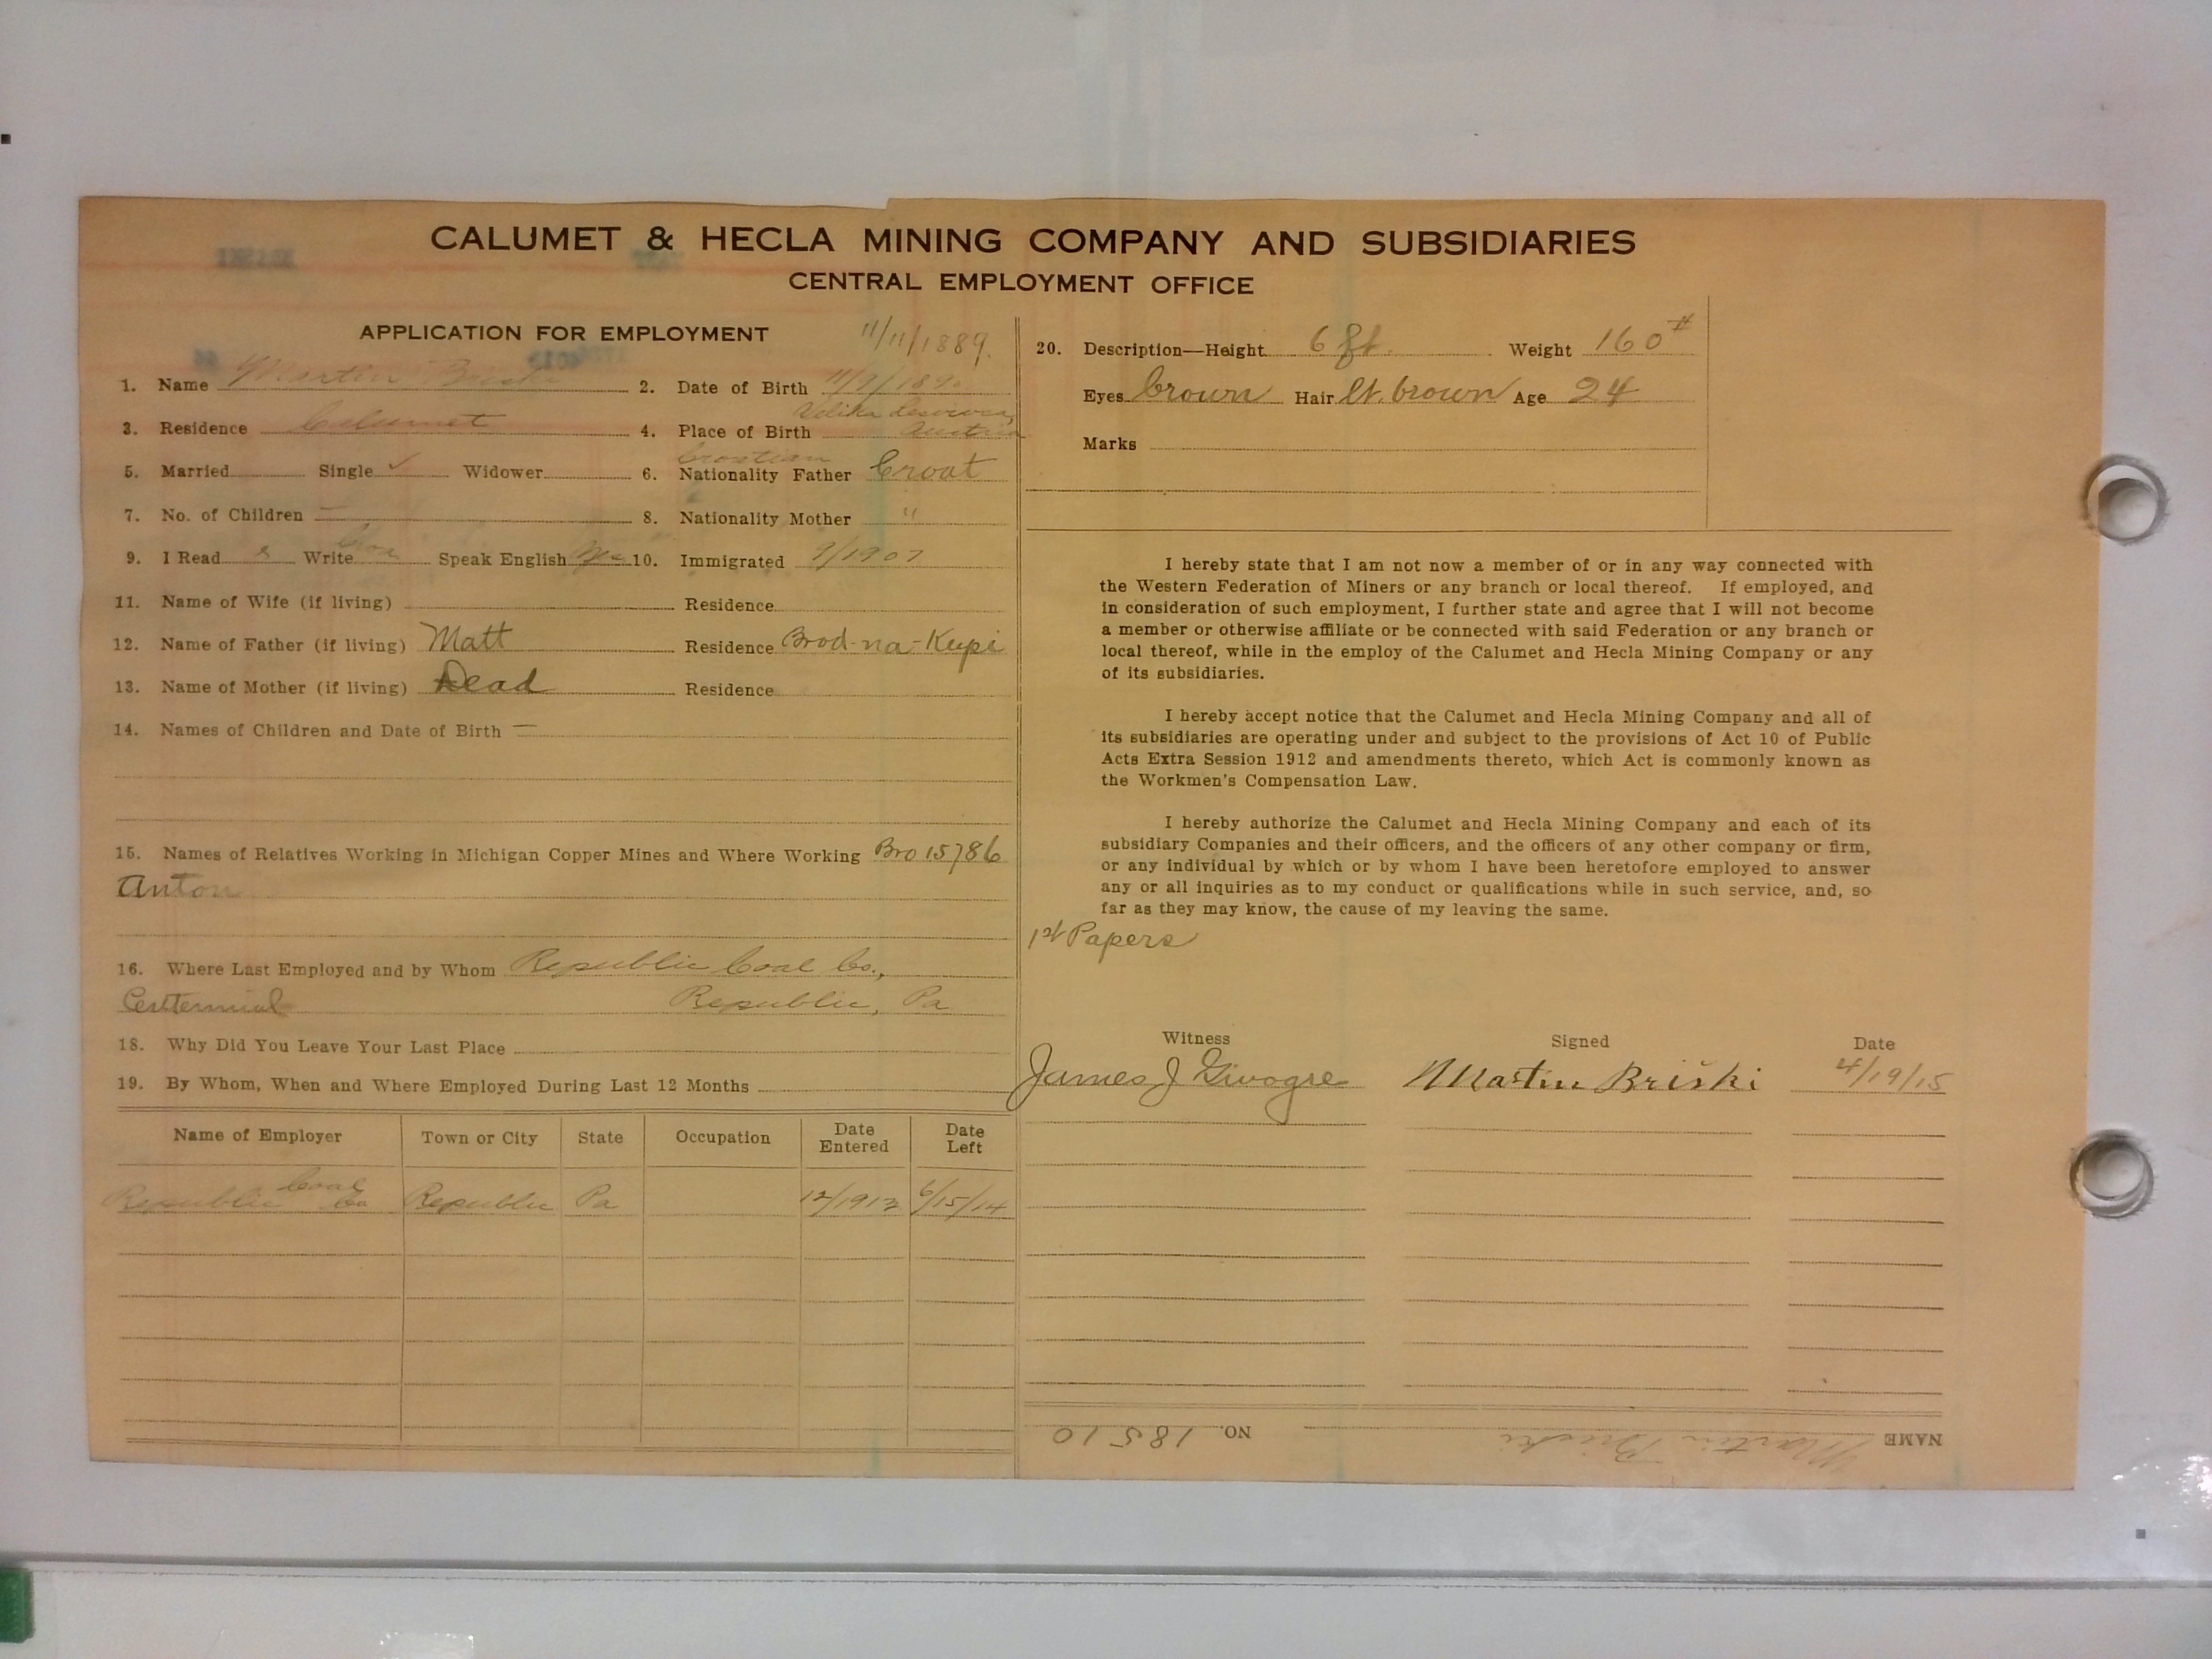 CALUMET & HECLA MINING COMPANY AND SUBSIDIARIES
CENTRAL EMPLOYMENT OFFICE
APPLICATION FOR EMPLOYMENT
11/11/1889.
1. Name Martin Briski 2. Date of Birth 11/9/1890
Velika
3. Residence Calumet 4. Place of Birth Austria
Croatian
5. Married Single ✓ Widower 6. Nationality Father Croat
7. No. of Children — 8. Nationality Mother "
9. I Read & Write Croa Speak English 10. Immigrated 9/1907
11. Name of Wife (if living) Residence
12. Name of Father (if living) Matt Residence Brod-na-Kupi
13. Name of Mother (if living) Dead Residence
14. Names of Children and Date of Birth —
15. Names of Relatives Working in Michigan Copper Mines and Where Working Bro 15786
Anton
16. Where Last Employed and by Whom Republic Coal Co.,
Centennial Republic, Pa
18. Why Did You Leave Your Last Place
19. By Whom, When and Where Employed During Last 12 Months
Name of Employer Town or City State Occupation Date Entered Date Left
Republic Coal Co Republic Pa 12/1912 6/15/14
20. Description—Height 6 ft. Weight 160#
Eyes brown Hair lt. brown Age 24
Marks
I hereby state that I am not now a member of or in any way connected with
the Western Federation of Miners or any branch or local thereof. If employed, and
in consideration of such employment, I further state and agree that I will not become
a member or otherwise affiliate or be connected with said Federation or any branch or
local thereof, while in the employ of the Calumet and Hecla Mining Company or any
of its subsidiaries.
I hereby accept notice that the Calumet and Hecla Mining Company and all of
its subsidiaries are operating under and subject to the provisions of Act 10 of Public
Acts Extra Session 1912 and amendments thereto, which Act is commonly known as
the Workmen's Compensation Law.
I hereby authorize the Calumet and Hecla Mining Company and each of its
subsidiary Companies and their officers, and the officers of any other company or firm,
or any individual by which or by whom I have been heretofore employed to answer
any or all inquiries as to my conduct or qualifications while in such service, and, so
far as they may know, the cause of my leaving the same.
1st Papers
Witness Signed Date
James J Martin Briški 4/19/15
NAME Martin Briski NO. 18510